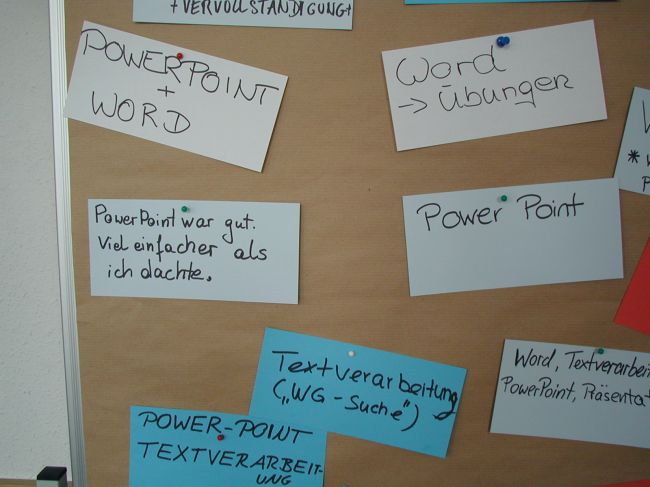 +VERVOLLSTÄNDIGUNG+
POWERPOINT
+
WORD
Word
→ Übungen
PowerPoint war gut.
Viel einfacher als
ich dachte.
Power Point
Textverarbeitung
(„WG-Suche")
Word, Textverarbeit
PowerPoint, Präsenta
POWER-POINT
TEXTVERARBEIT-
UNG